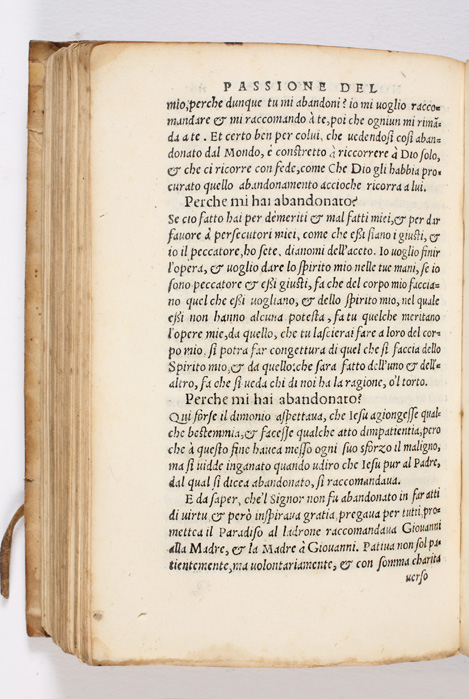 PASSIONE DEL
mio, perche dunque tu mi abandoni? io mi uoglio racco-
mandare & mi raccomando à te, poi che ogniun mi rimã
da a te. Et certo ben per colui, che uedendosi così aban-
donato dal Mondo, è constretto à riccorrere à Dio solo,
& che ci ricorre con fede, come Che Dio gli habbia pro-
curato quello abandonamento accioche ricorra a lui.
Perche mi hai abandonato?
Se cio fatto hai per demeriti & mal fatti miei, & per dar
fauore à persecutori miei, come che essi siano i giusti, &
io il peccatore, ho sete, dianomi dell'aceto. Io uoglio finir
l'opera, & uoglio dare lo spirito mio nelle tue mani, se io
sono peccatore & essi giusti, fa che del corpo mio faccia-
no quel che essi uogliano, & dello spirito mio, nel quale
essi non hanno alcuna potesta, fa tu quelche meritano
l'opere mie, da quello, che tu lascierai fare a loro del cor-
po mio, si potra far congettura di quel che si faccia dello
Spirito mio, & da quello: che sara fatto dell'uno & dell'-
altro, fa che si ueda chi di noi ha la ragione, o'l torto.
Perche mi hai abandonato?
Qui forse il dimonio aspettaua, che Iesu agiongesse qual-
che bestemmia, & facesse qualche atto dimpatientia, pero
che à questo fine hauea messo ogni suo sforzo il maligno,
ma si uidde inganato quando udiro che Iesu pur al Padre,
dal qual si dicea abandonato, si raccomandaua.
E da saper, che'l Signor non fu abandonato in far atti
di uirtu, & però inspiraua gratia, pregaua per tutti, pro-
mettea il Paradiso al ladrone raccomandaua Giouanni
alla Madre, & la Madre à Giouanni. Patiua non sol pa-
tientemente, ma uolontariamente, & con somma charita
uerso